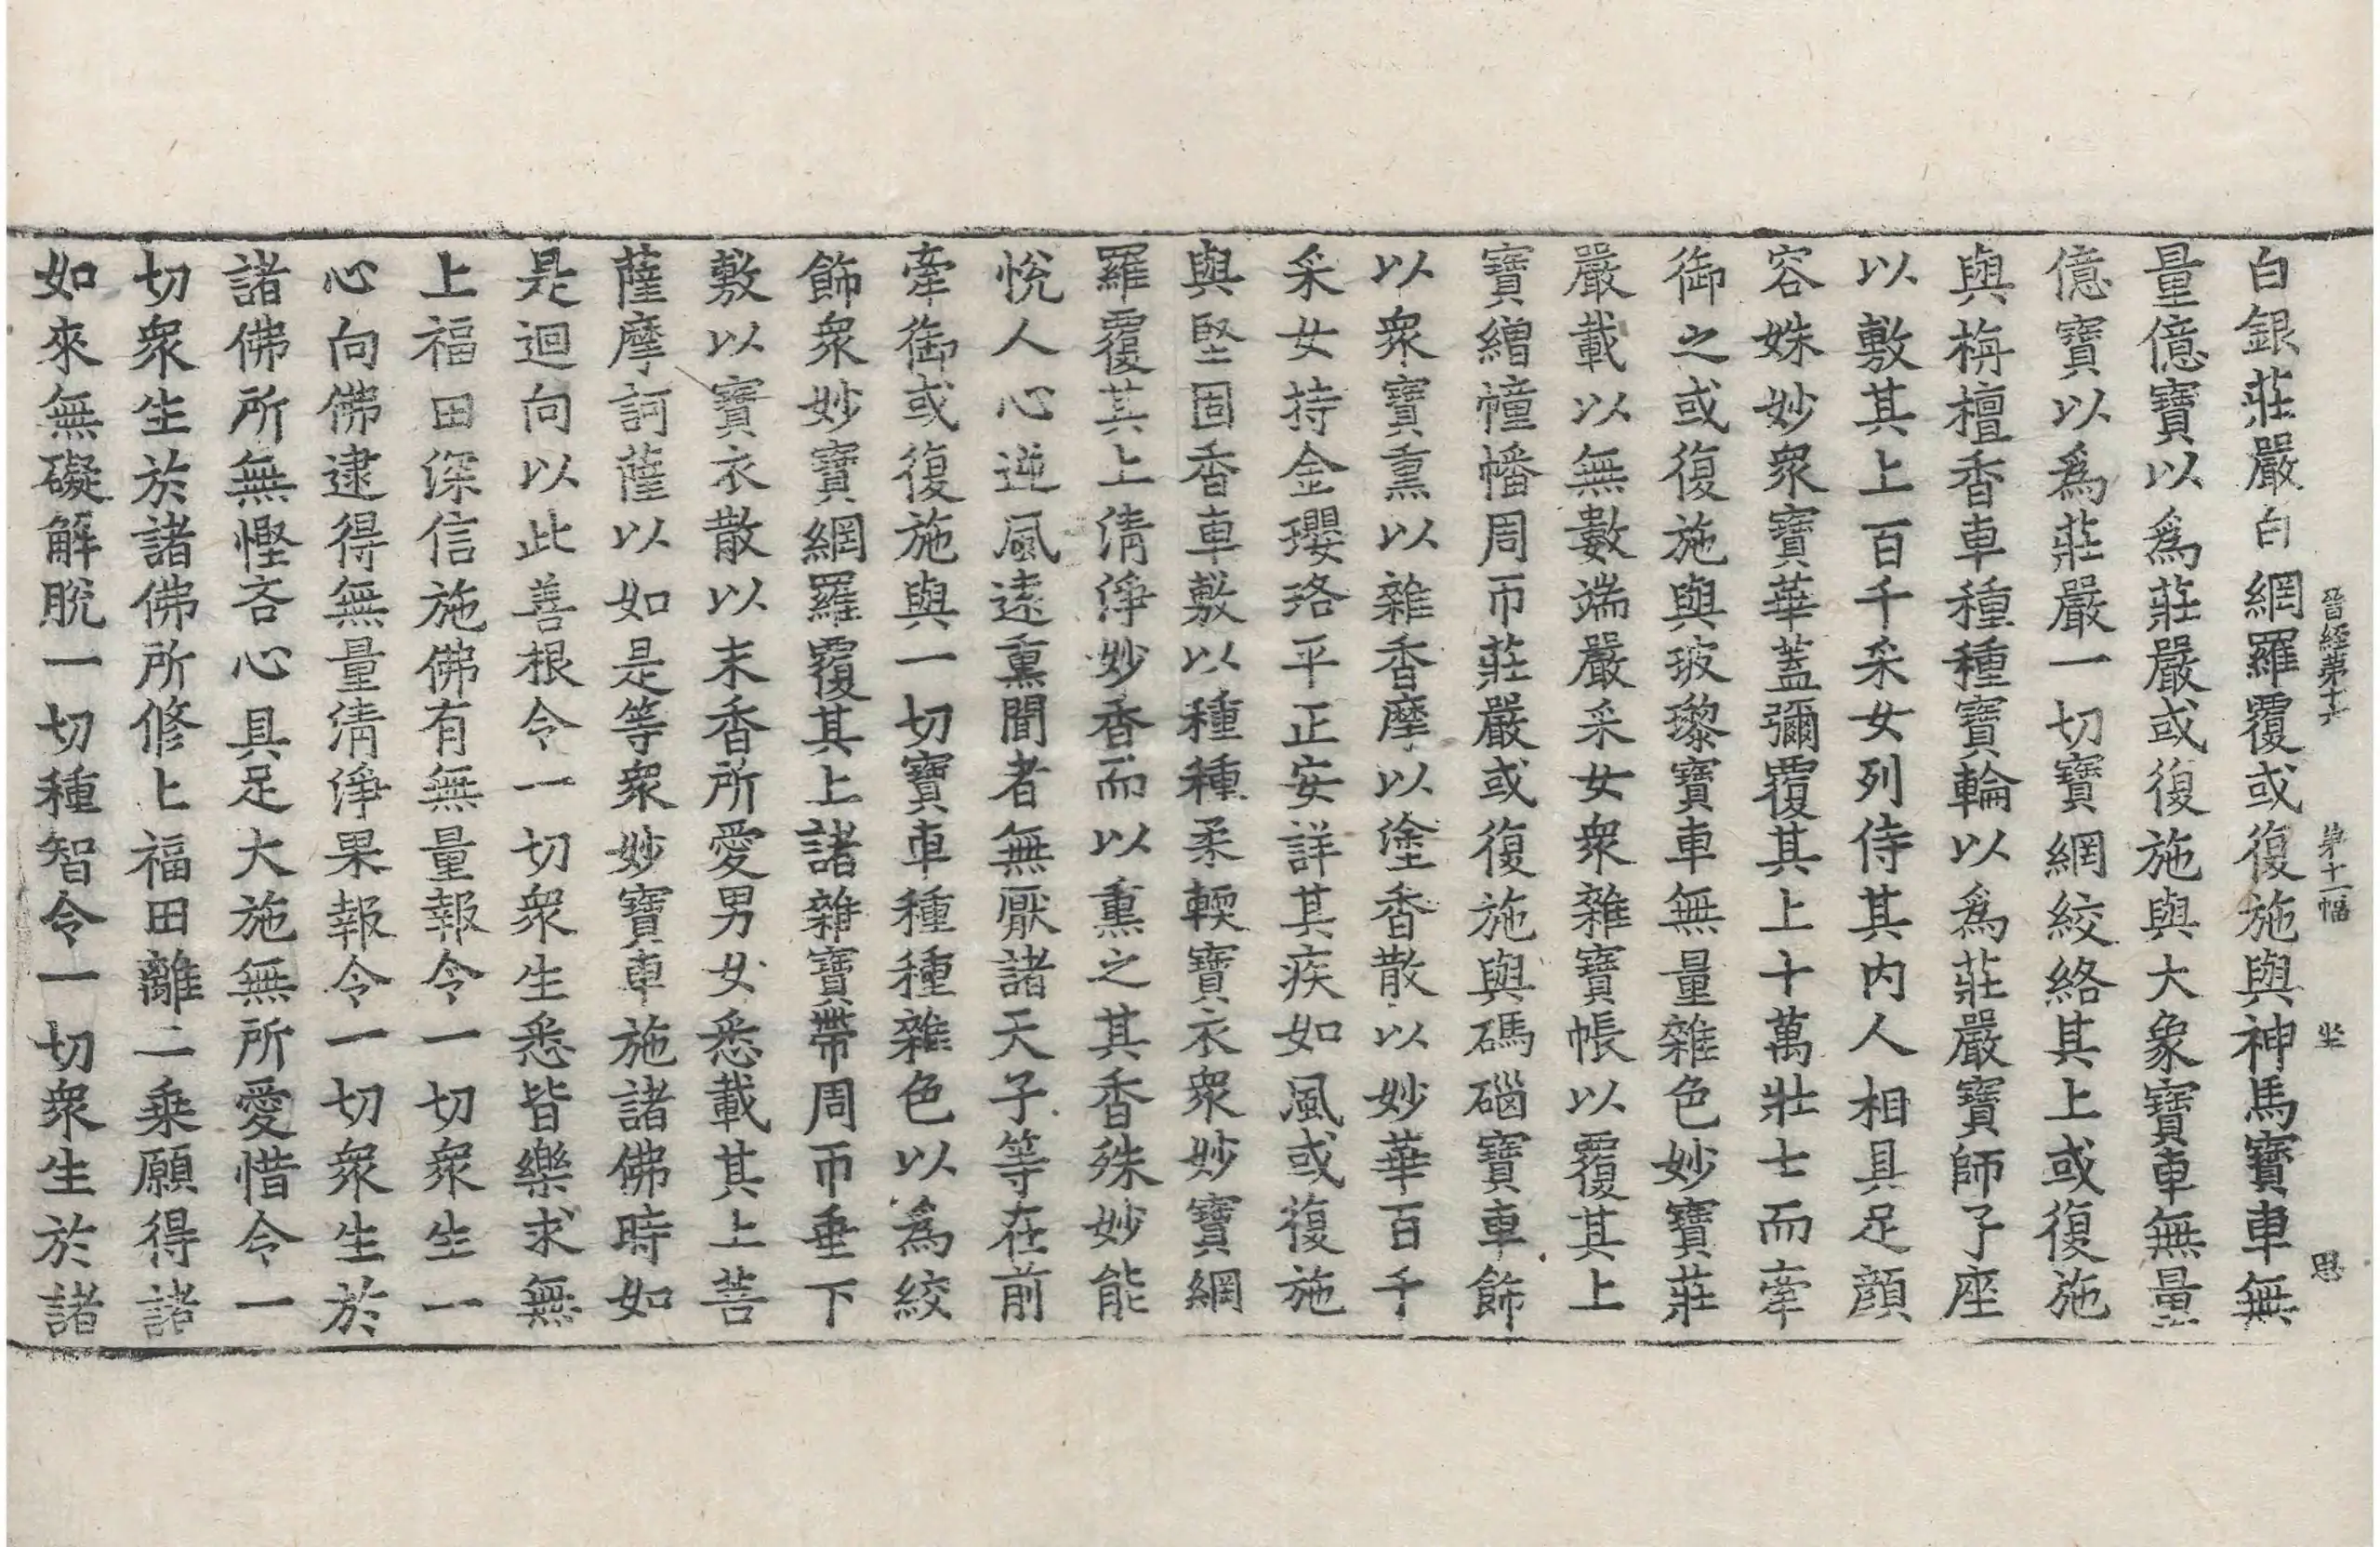 晉經第十六　第十一幅　坐　思
白銀莊嚴白網羅覆或復施與神馬寶車無
量億寶以爲莊嚴或復施與大象寶車無量
億寶以爲莊嚴一切寶網絞絡其上或復施
與栴檀香車種種寶輪以爲莊嚴寶師子座
以敷其上百千采女列侍其内人相具足顔
容姝妙衆寶華蓋彌覆其上十萬壯士而牽
御之或復施與玻瓈寶車無量雜色妙寶莊
嚴載以無數端嚴采女衆雜寶帳以覆其上
寶繒幢幡周帀莊嚴或復施與碼碯寶車飾
以衆寶熏以雜香摩以塗香散以妙華百千
采女持金瓔珞平正安詳其疾如風或復施
與堅固香車敷以種種柔輭寶衣衆妙寶網
羅覆其上清淨妙香而以熏之其香殊妙能
悅人心逆風遠熏聞者無厭諸天子等在前
牽御或復施與一切寶車種種雜色以為絞
飾衆妙寶網羅覆其上諸雜寶帶周帀垂下
敷以寶衣散以末香所愛男女悉載其上菩
薩摩訶薩以如是等衆妙寶車施諸佛時如
是迴向以此善根令一切衆生悉皆樂求無
上福田深信施佛有無量報令一切衆生一
心向佛逮得無量清淨果報令一切衆生於
諸佛所無慳吝心具足大施無所愛惜令一
切衆生於諸佛所修上福田離二乘願得諸
如來無礙解脫一切種智令一切衆生於諸